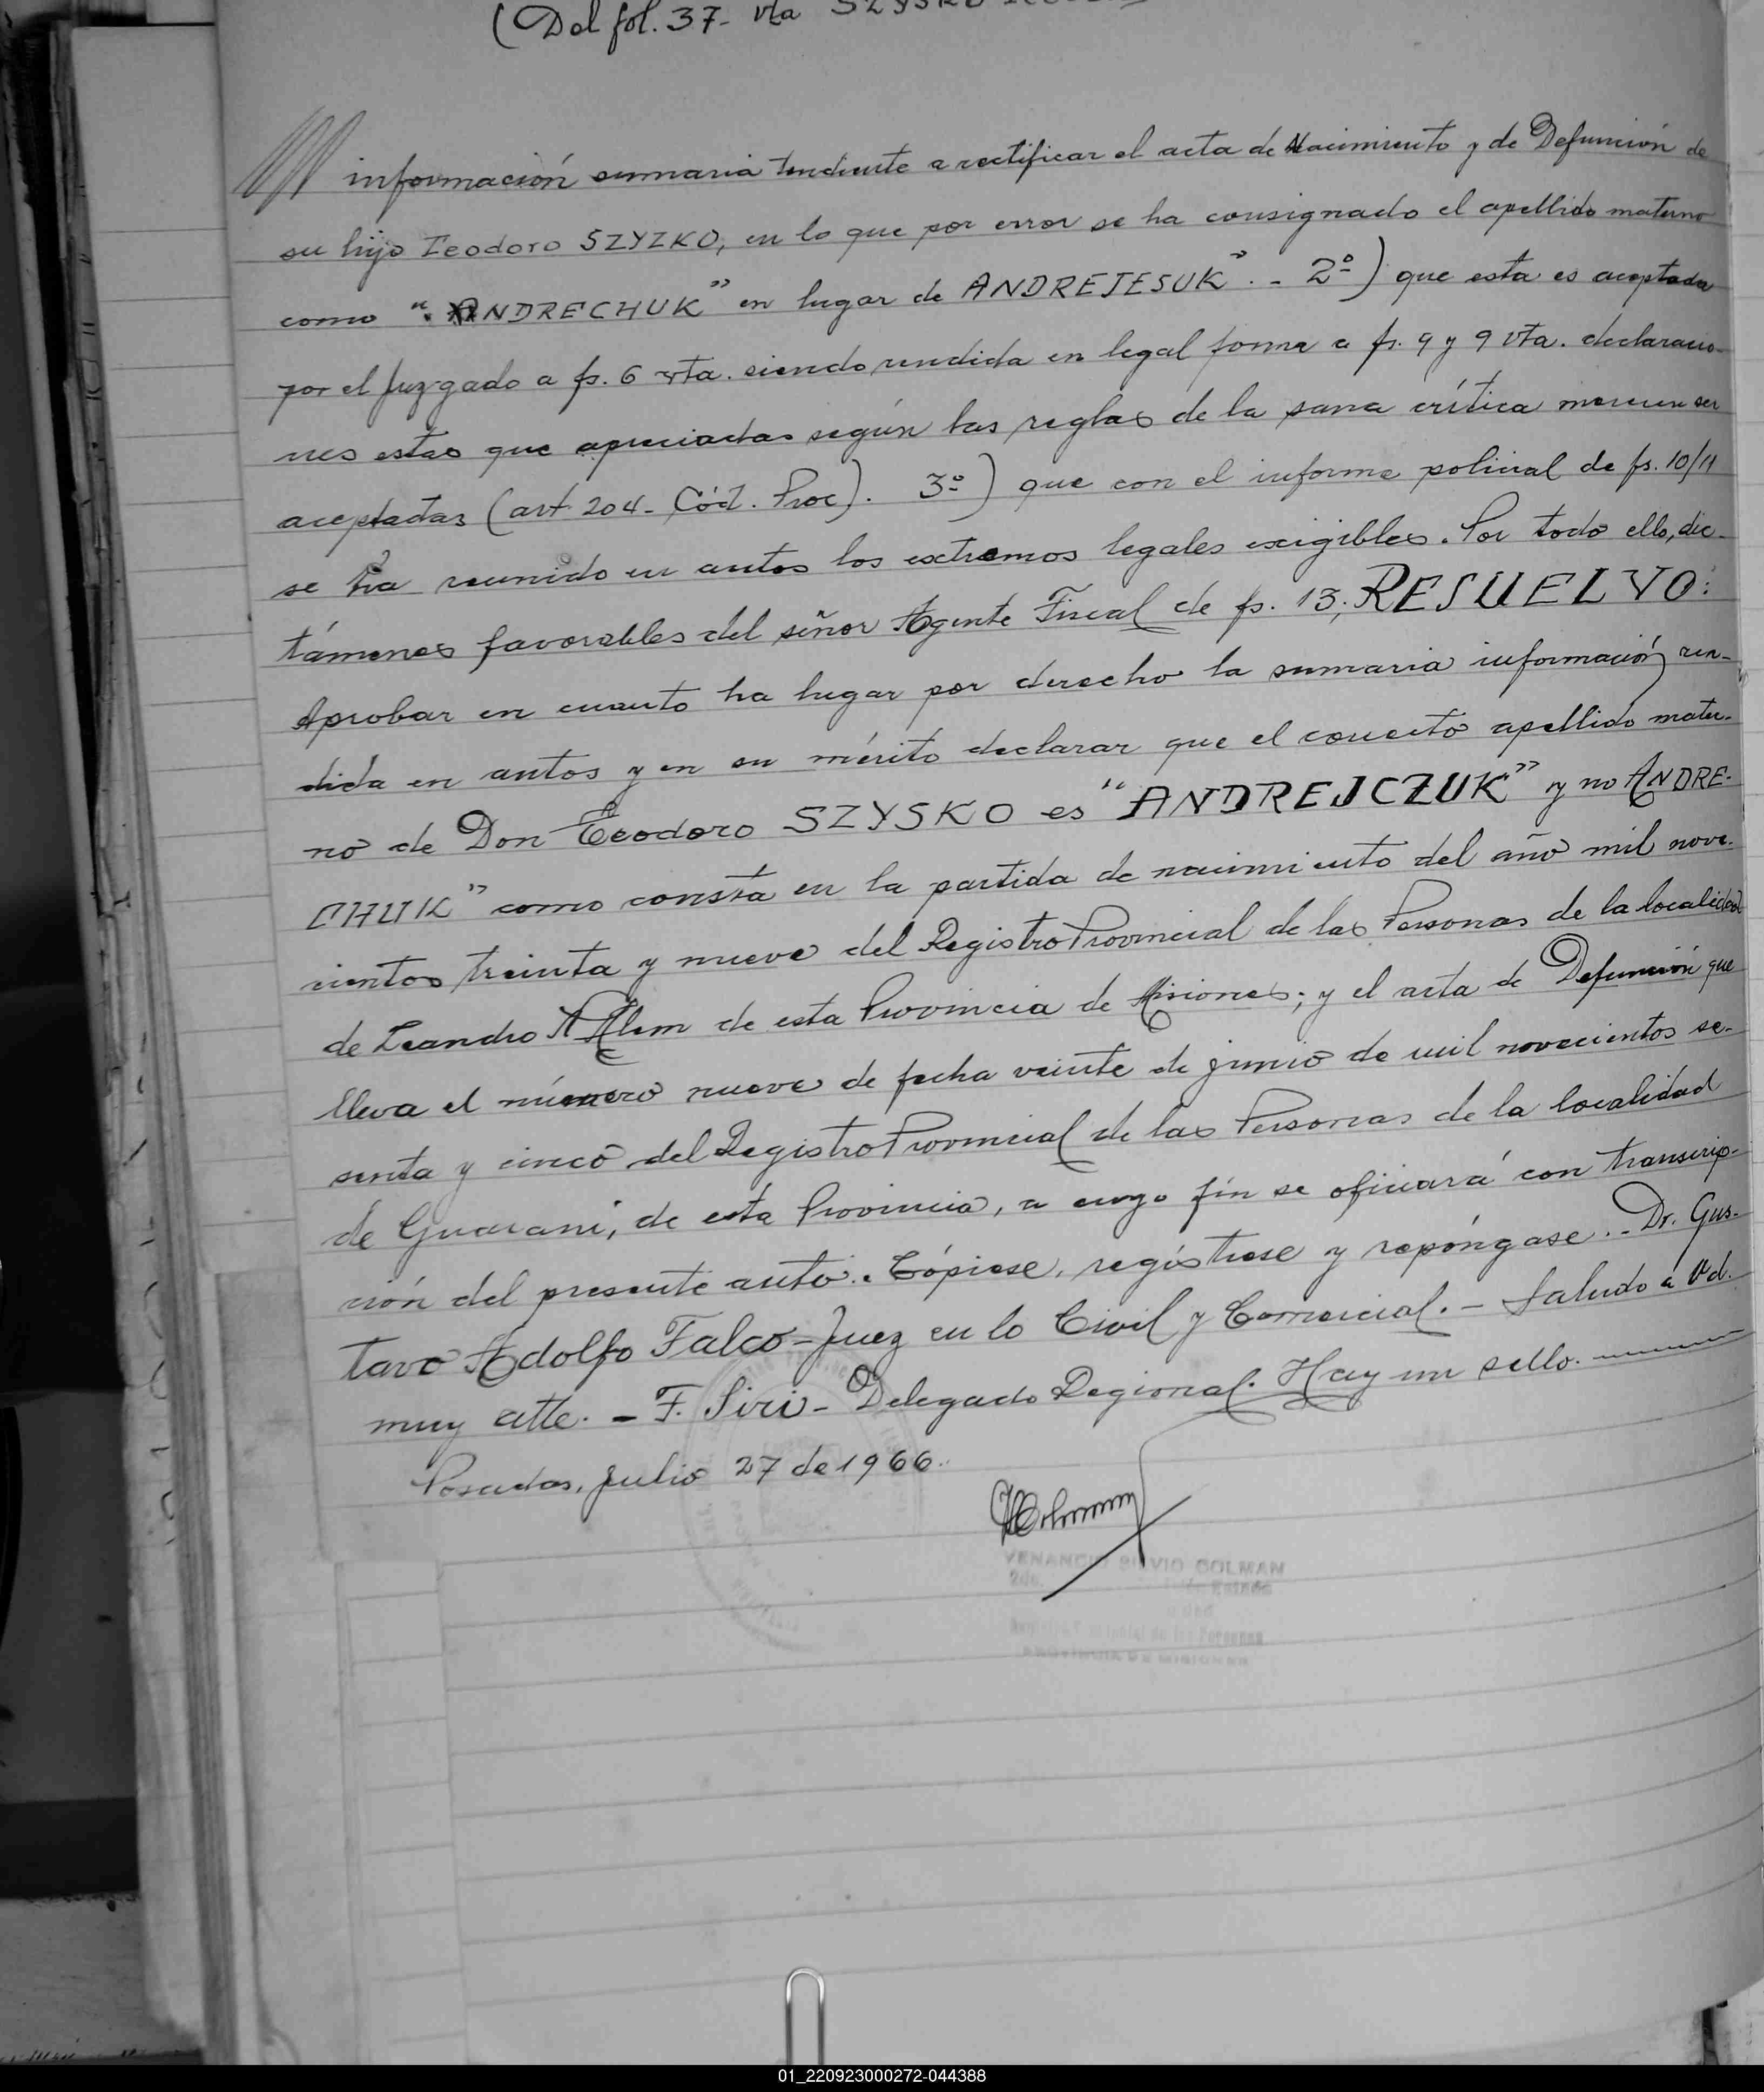 (Del fol. 37- vta SZYSKO
información sumaria tendiente a rectificar el acta de Nacimiento y de Defunción de
su hijo Teodoro SZYZKO, en lo que por error se ha consignado el apellido materno
como "ANDRECHUK" en lugar de ANDREJESUK". - 2º) que esta es aceptada
por el Juzgado a fs. 6 vta. siendo rendida en legal forma a fs. 9 y 9 vta. declaracio-
nes estas que apreciadas según las reglas de la sana crítica merecen ser
aceptadas (art. 204- Cód. Proc). 3º) que con el informe policial de fs. 10/11
se ha reunido en autos los extremos legales exigibles. Por todo ello, dic-
támenes favorables del señor Agente Fiscal de fs. 13; RESUELVO:
Aprobar en cuanto ha lugar por derecho la sumaria información ren-
dida en autos y en su mérito declarar que el correcto apellido mater-
no de Don Teodoro SZYSKO es "ANDREJCZUK" y no ANDRE-
CHUK" como consta en la partida de nacimiento del año mil nove-
cientos treinta y nueve del Registro Provincial de las Personas de la localidad
de Leandro N Alem de esta Provincia de Misiones; y el acta de Defunción que
lleva el número nueve de fecha veinte de junio de mil novecientos se-
senta y cinco del Registro Provincial de las Personas de la localidad
de Guaraní, de esta Provincia, a cuyo fin se oficiará con transcrip-
ción del presente auto.. Cópiese, regístrese y repóngase.. - Dr. Gus-
tavo Adolfo Falco - Juez en lo Civil y Comercial. - Saludo a Ud.
muy atte. - F. Siri - Delegado Regional. Hay un sello.
Posadas, Julio 27 de 1966.
VENANCIO SILVIO COLMAN
PROVINCIA DE MISIONES
01_220923000272-044388